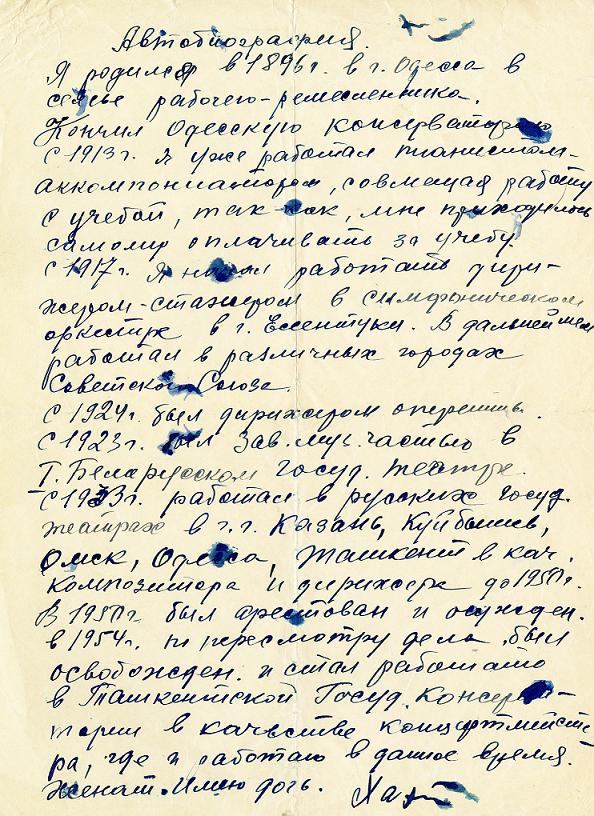 Автобиография.
Я родился в 1896г. в г. Одесса в
семье рабочего-ремесленника.
Кончил Одесскую консерваторию
с 1913г. я уже работал пианистом-
аккомпониатором, совмещая работу
с учебой, так как, мне приходилось
самому оплачивать за учебу.
с 1917г. Я начал работать дири-
жером-стажером в симфоническом
оркистре в г. Ессентуки. В дальнейшем
работал в различных городах
Советского Союза.
С 1924г. был дирижером оперетты.
С 1923г. был зав. муз. частью в
Т. Беларусском Госуд. театре.
с 1933г. работал в русских госуд.
театрах в г.г. Казань, Куйбышев,
Омск, Одесса, Ташкент в кач.
композитора и дирижера до 1950г.
В 1950г. был арестован и осужден.
в 1954г. по пересмотру дела был
освобожден. и стал работать
в Ташкентской Госуд. Консерва-
тории в качестве концертмейсте
ра, где и работаю в данное время.
Женат. Имею дочь.